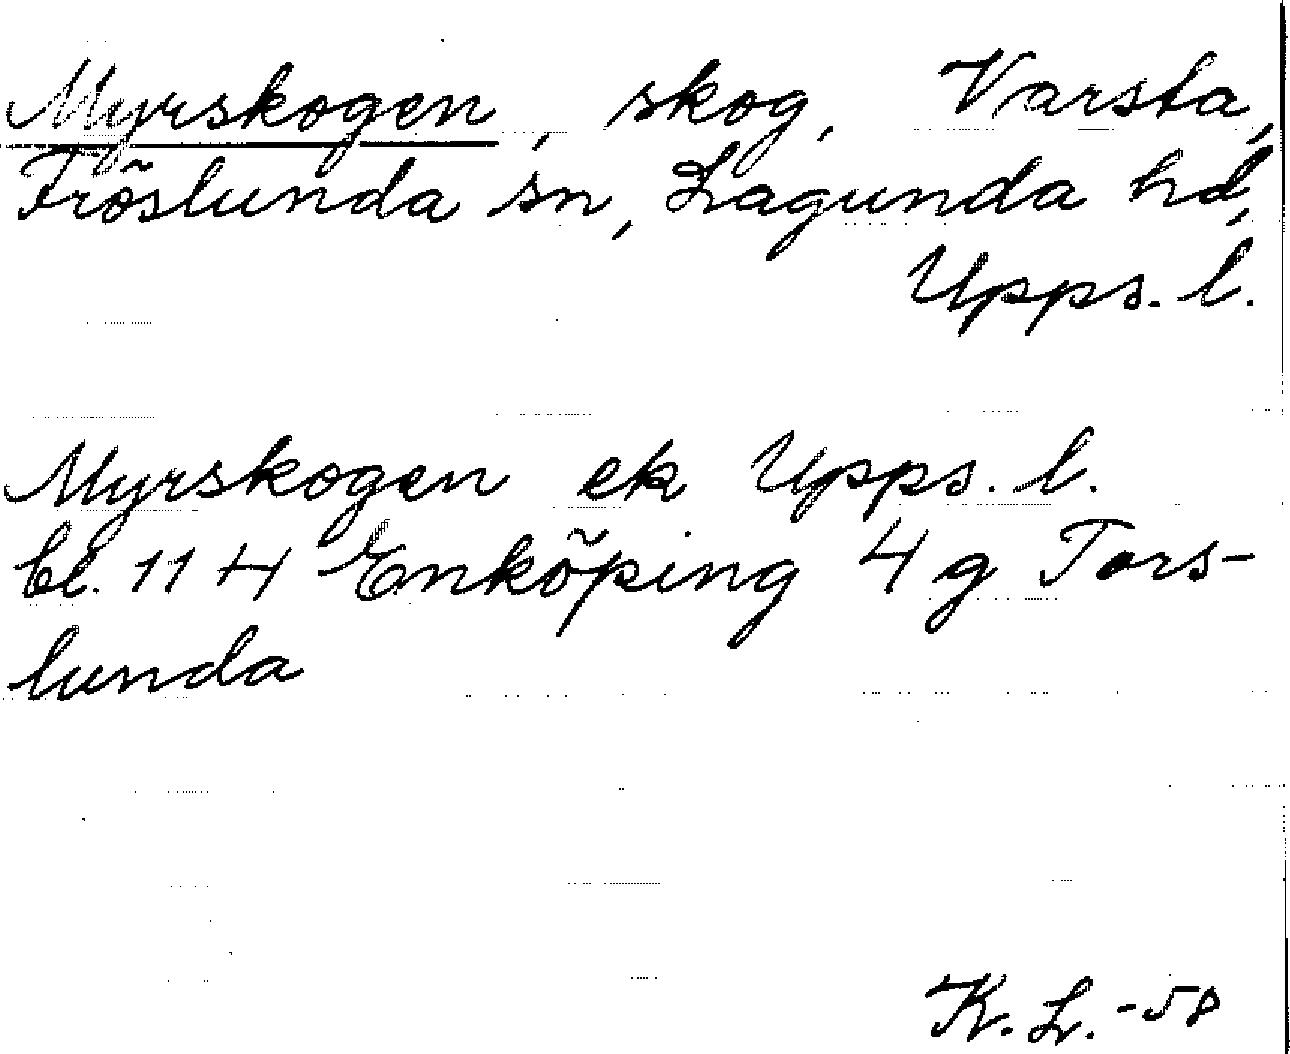 Myrskogen, skog, Varsta,
Fröslunda sn, Lagunda hd,
Upps. l.
Myrskogen ek Upps. l.
bl. 11 H Enköping 4 g Tors-
lunda
K. L. -58